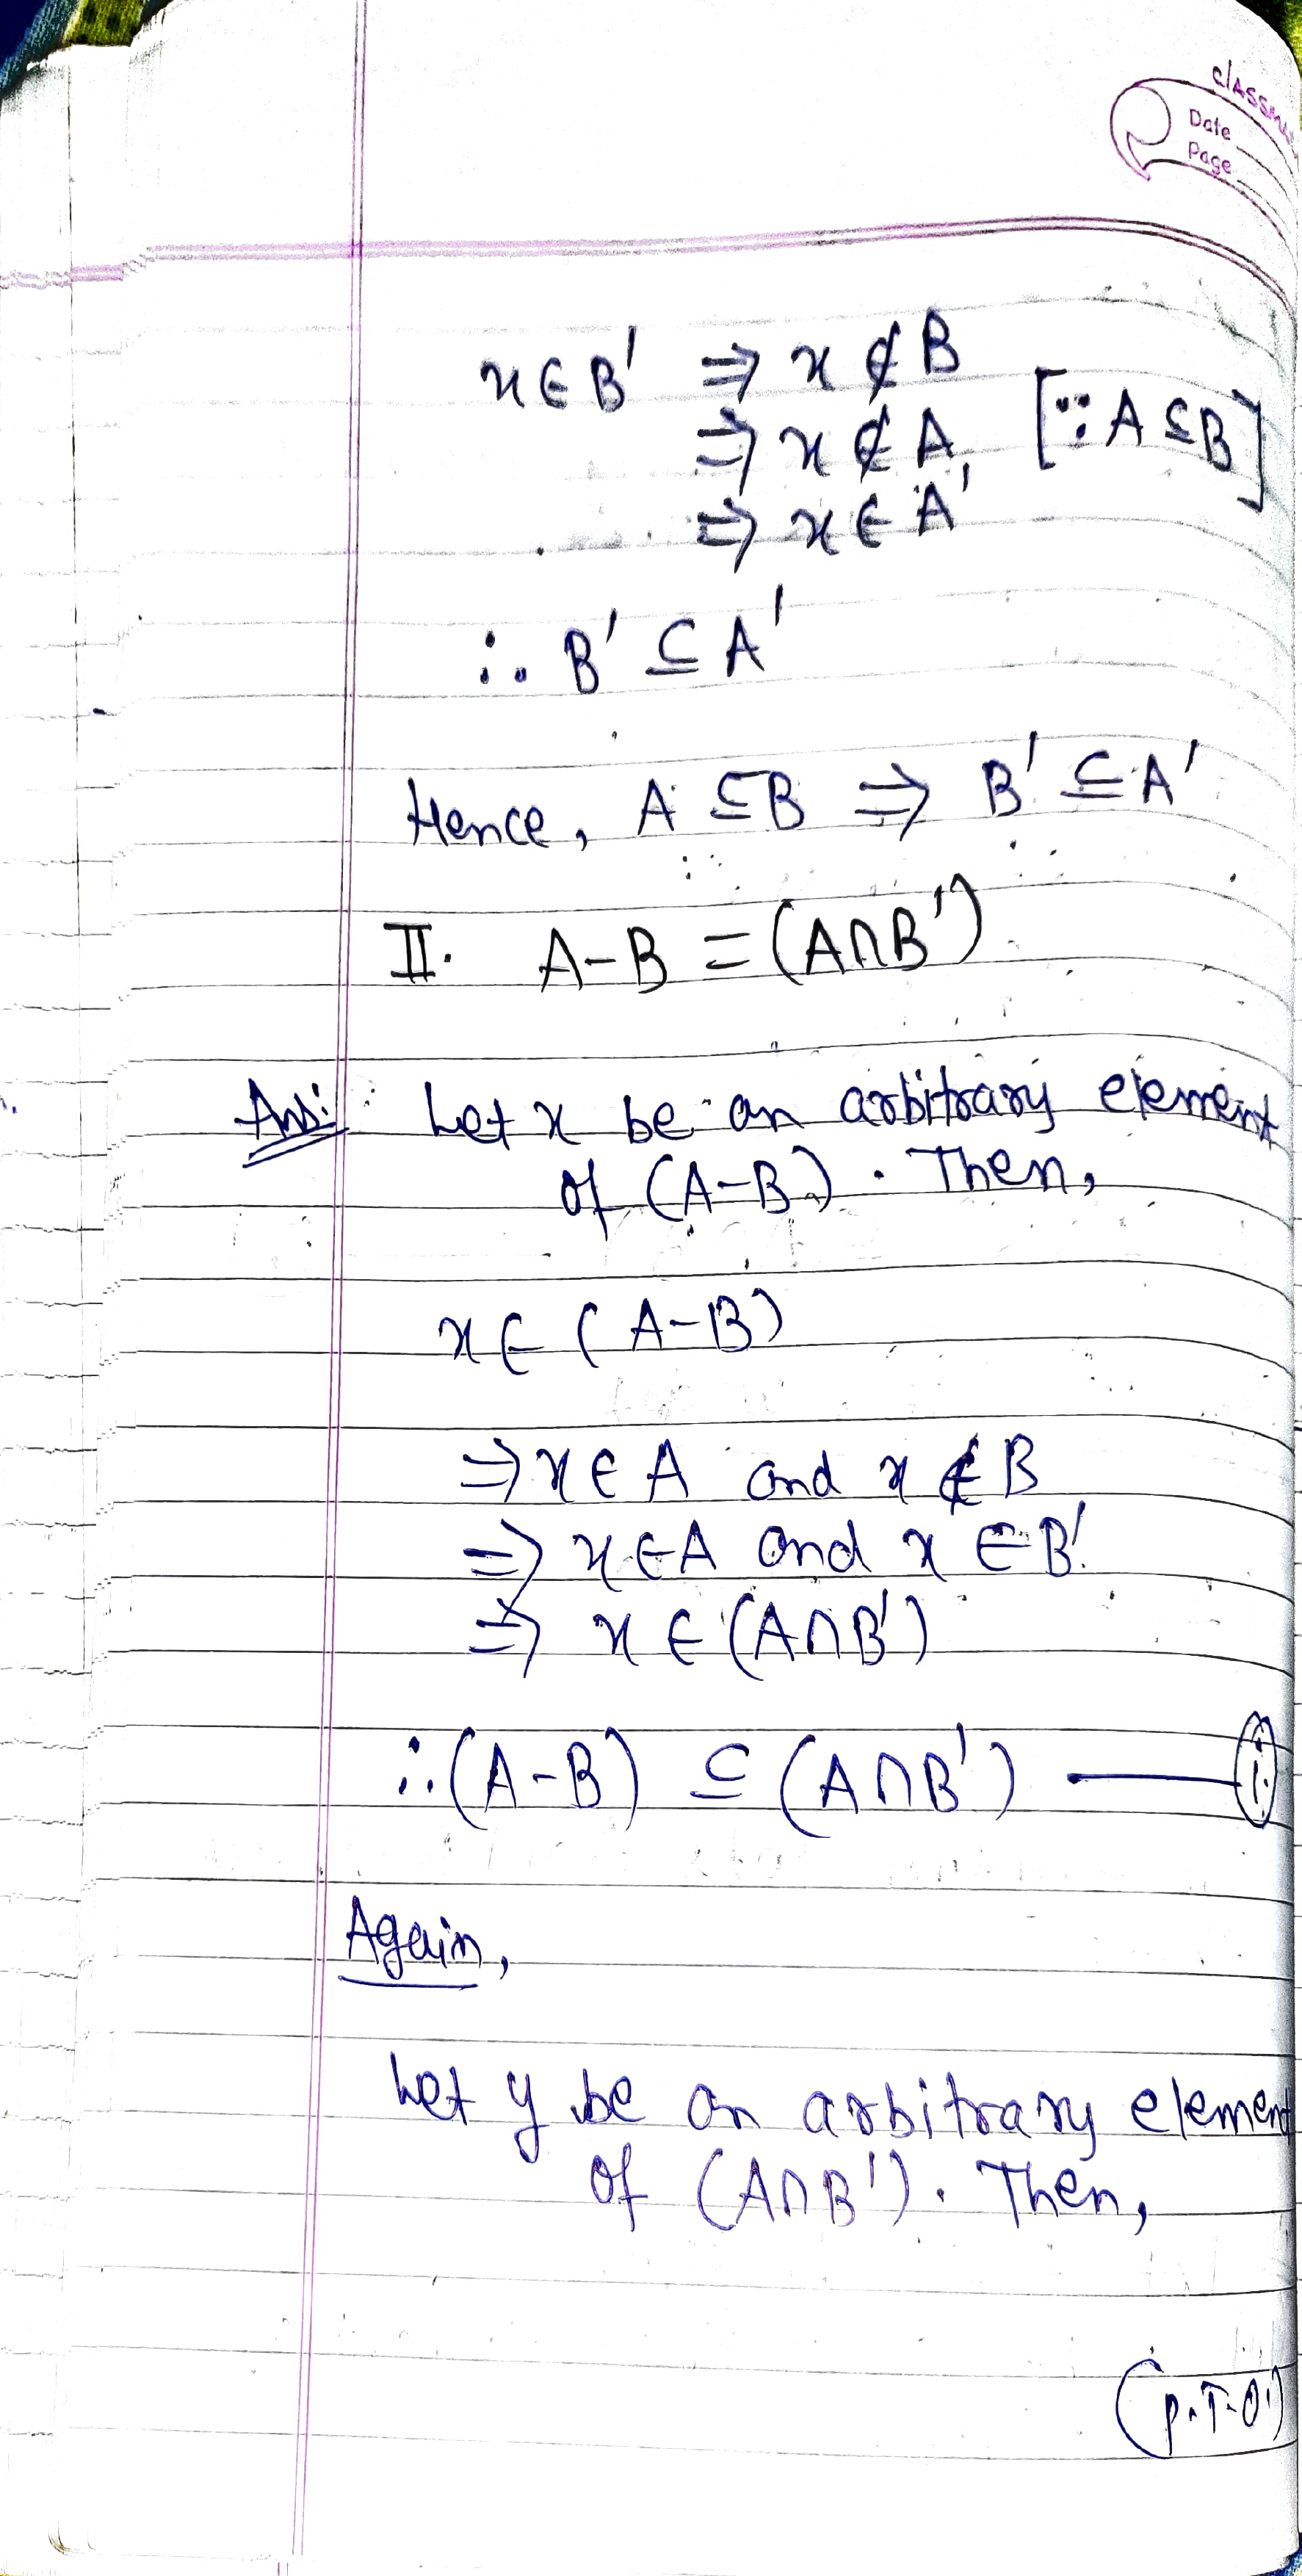 classm
Date
Page
x ∈ B' ⇒ x ∉ B
⇒ x ∉ A, [∵ A ⊆ B]
⇒ x ∈ A'
∴ B' ⊆ A'
Hence, A ⊆ B ⇒ B' ⊆ A'
II. A-B = (A∩B')
Ans: Let x be an arbitrary element
of (A-B). Then,
x ∈ (A-B)
⇒ x ∈ A and x ∉ B
⇒ x ∈ A and x ∈ B'
⇒ x ∈ (A∩B')
∴ (A-B) ⊆ (A∩B') — (i)
Again,
Let y be an arbitrary element
of (A∩B'). Then,
(P.T.O.)